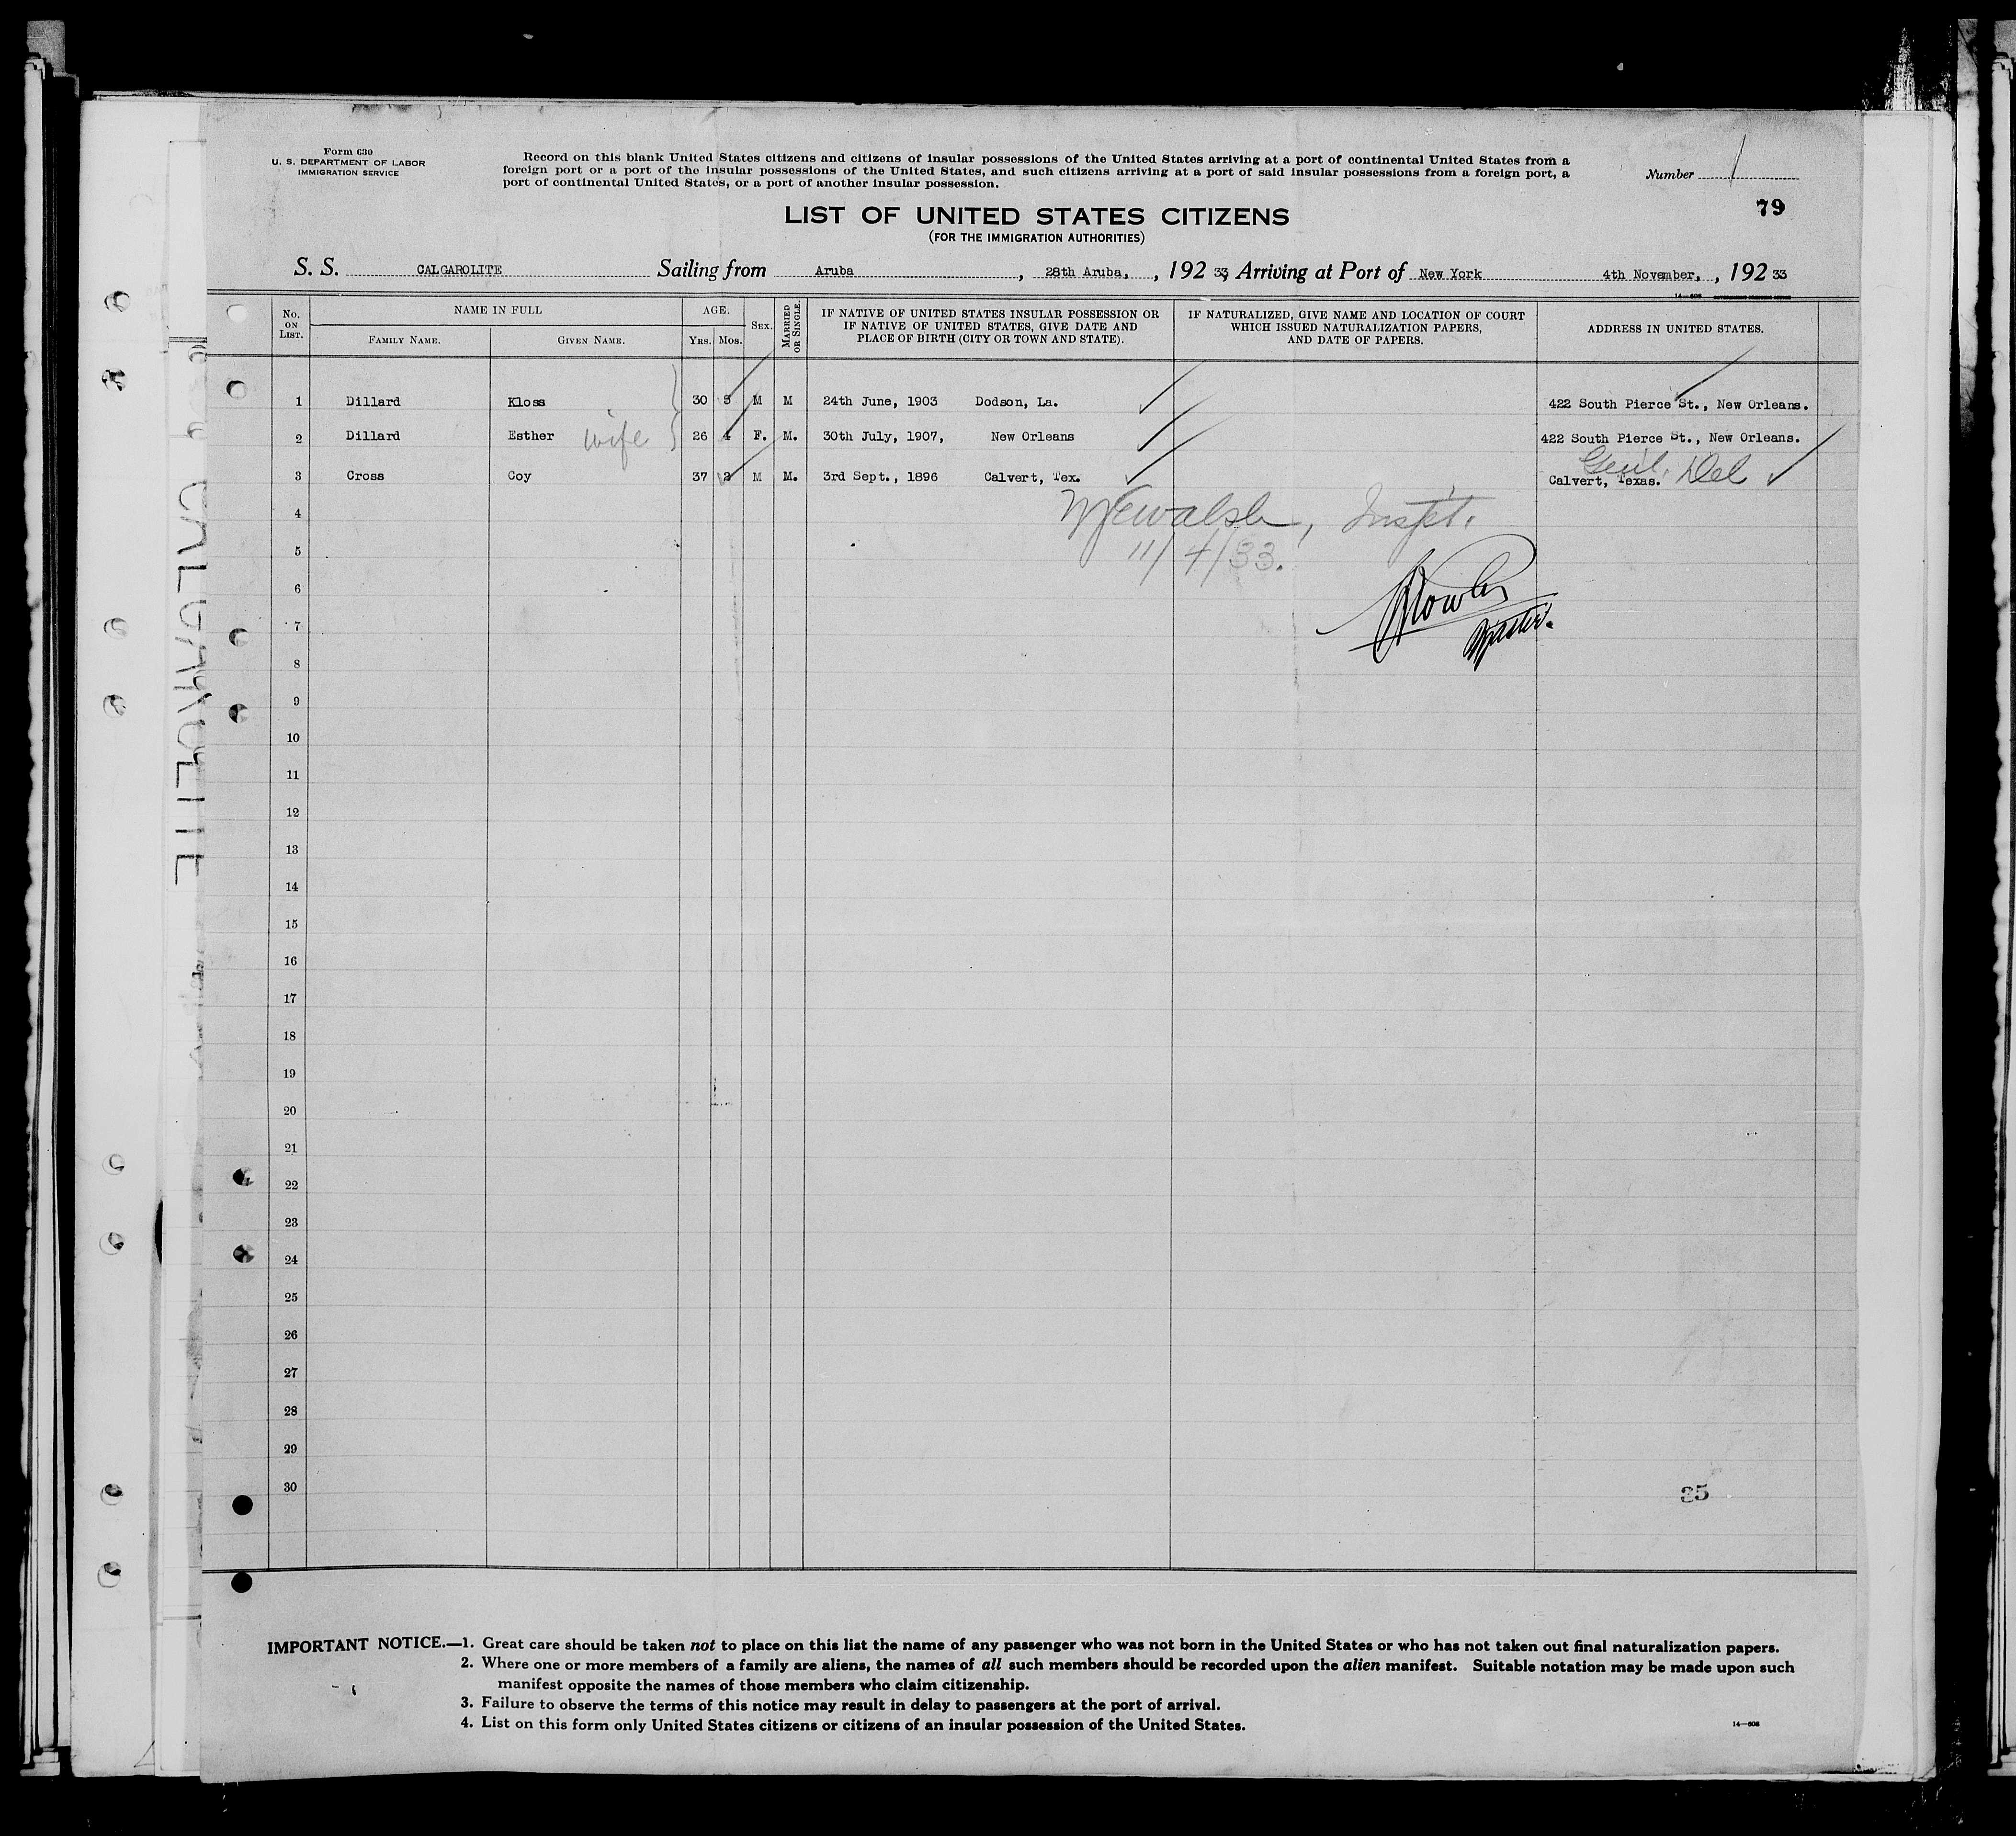 Form 630
U. S. DEPARTMENT OF LABOR
IMMIGRATION SERVICE
Record on this blank United States citizens and citizens of insular possessions of the United States arriving at a port of continental United States from a
foreign port or a port of the insular possessions of the United States, and such citizens arriving at a port of said insular possessions from a foreign port, a
port of continental United States, or a port of another insular possession.
Number 1
79
LIST OF UNITED STATES CITIZENS
(FOR THE IMMIGRATION AUTHORITIES)
S. S. CALGAROLITE Sailing from Aruba, 28th Aruba, , 192 33, Arriving at Port of New York 4th November, , 192 33
14—608 GOVERNMENT PRINTING OFFICE
No. ON LIST. NAME IN FULL FAMILY NAME. GIVEN NAME. AGE. YRS. MOS. SEX. MARRIED OR SINGLE. IF NATIVE OF UNITED STATES INSULAR POSSESSION OR IF NATIVE OF UNITED STATES, GIVE DATE AND PLACE OF BIRTH (CITY OR TOWN AND STATE). IF NATURALIZED, GIVE NAME AND LOCATION OF COURT WHICH ISSUED NATURALIZATION PAPERS, AND DATE OF PAPERS. ADDRESS IN UNITED STATES.
1 Dillard Kloss 30 5 M M 24th June, 1903 Dodson, La. 422 South Pierce St., New Orleans.
2 Dillard Esther wife 26 4 F. M. 30th July, 1907, New Orleans 422 South Pierce St., New Orleans.
3 Cross Coy 37 2 M M. 3rd Sept., 1896 Calvert, Tex. Calvert, Texas. Genl. Del
4 Walsh, Inspt.
5 11/4/33.
6
7 Master.
8
9
10
11
12
13
14
15
16
17
18
19
20
21
22
23
24
25
26
27
28
29
30
35
CALGAROLITE
IMPORTANT NOTICE.—1. Great care should be taken not to place on this list the name of any passenger who was not born in the United States or who has not taken out final naturalization papers.
2. Where one or more members of a family are aliens, the names of all such members should be recorded upon the alien manifest. Suitable notation may be made upon such
manifest opposite the names of those members who claim citizenship.
3. Failure to observe the terms of this notice may result in delay to passengers at the port of arrival.
4. List on this form only United States citizens or citizens of an insular possession of the United States.
14—608